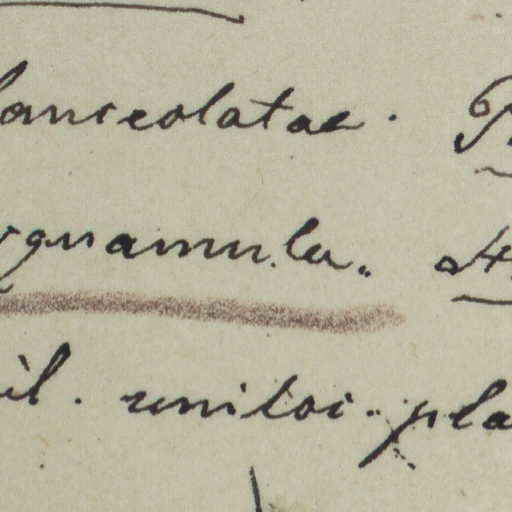 lanceolatae. P
squamula. St
il. uniloc. pla